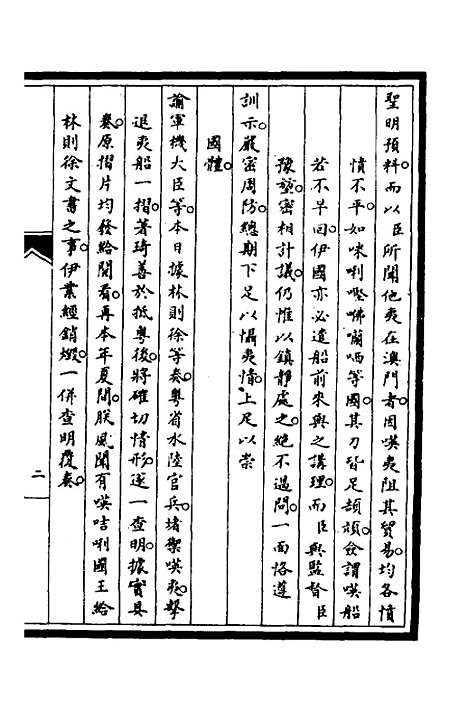 聖明預料。而以臣所聞他夷在澳門者。因𠸄夷阻其貿易。均各憤
憤不平。如咪唎㗷咈囒哂等國。其力皆足頡頏。僉謂𠸄船
若不早回。伊國亦必遣船前來與之講理。而臣與監督臣
豫堃密相計議。仍惟以鎮靜處之。絕不過問。一面恪遵
訓示。嚴密周防。總期下足以懾夷情。上足以崇
國體。
諭軍機大臣等。本日據林則徐等奏。粵省水陸官兵。堵禦𠸄夷。擊
退夷船一摺。著琦善於抵粵後。將確切情形。逐一查明。據實具
奏。原摺片均發給閱看。再本年夏間。朕風聞有𠸄咭唎國王給
林則徐文書之事。伊業經銷燬。一併查明覆奏。
二